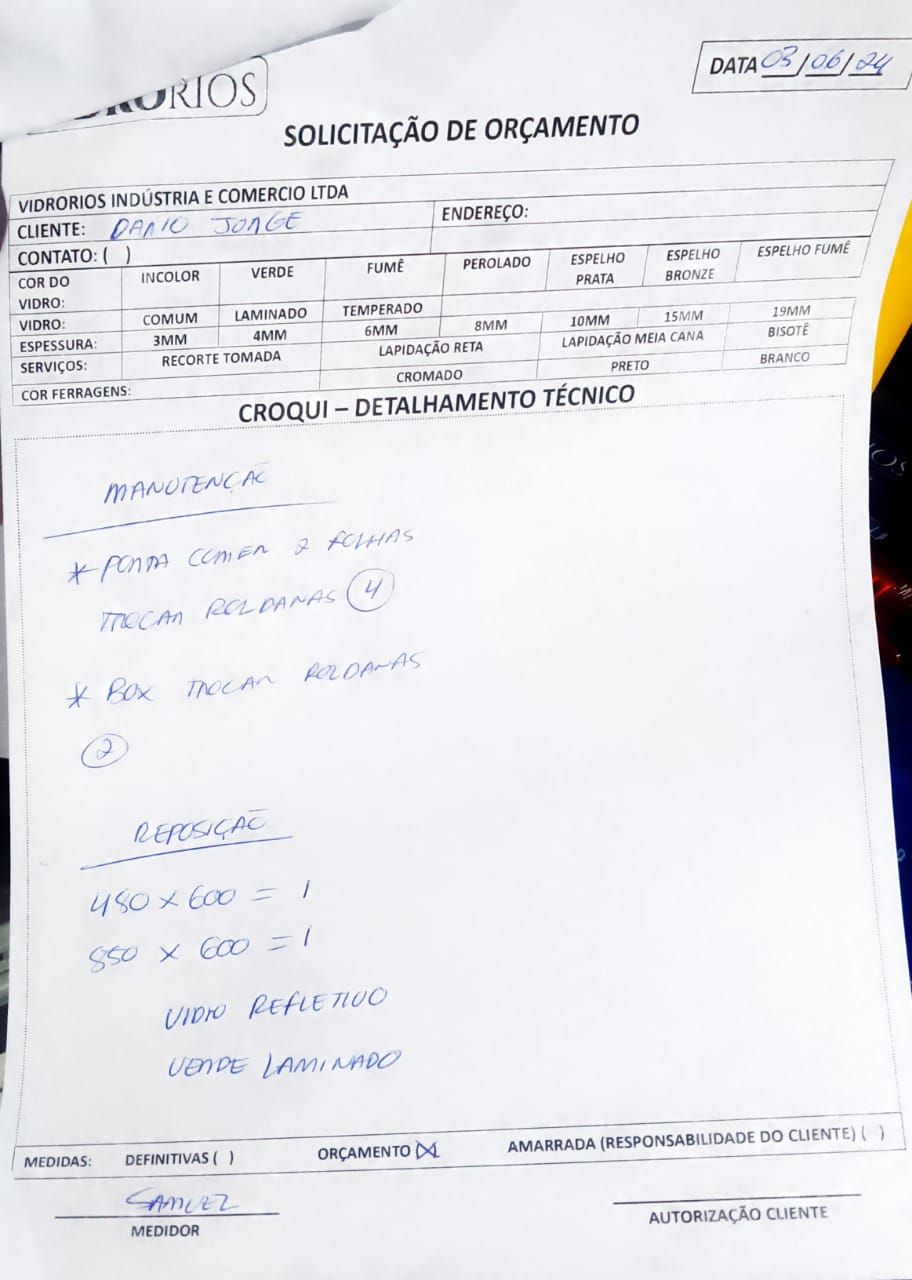 RORIOS
DATA 03/06/24
SOLICITAÇÃO DE ORÇAMENTO
VIDRORIOS INDÚSTRIA E COMERCIO LTDA
CLIENTE: DARIO JORGE
ENDEREÇO:
CONTATO: ( )
COR DO VIDRO: INCOLOR VERDE FUMÊ PEROLADO ESPELHO PRATA ESPELHO BRONZE ESPELHO FUMÊ
VIDRO: COMUM LAMINADO TEMPERADO
ESPESSURA: 3MM 4MM 6MM 8MM 10MM 15MM 19MM
SERVIÇOS: RECORTE TOMADA LAPIDAÇÃO RETA LAPIDAÇÃO MEIA CANA BISOTÊ
COR FERRAGENS: CROMADO PRETO BRANCO
CROQUI – DETALHAMENTO TÉCNICO
MANUTENÇÃO
* PORTA CORRER 2 FOLHAS
TROCAR ROLDANAS 4
* BOX TROCAR ROLDANAS
2
REPOSIÇÃO
480 x 600 = 1
850 x 600 = 1
VIDRO REFLETIVO
VERDE LAMINADO
MEDIDAS: DEFINITIVAS ( ) ORÇAMENTO (X) AMARRADA (RESPONSABILIDADE DO CLIENTE) ( )
SAMUEL
MEDIDOR
AUTORIZAÇÃO CLIENTE